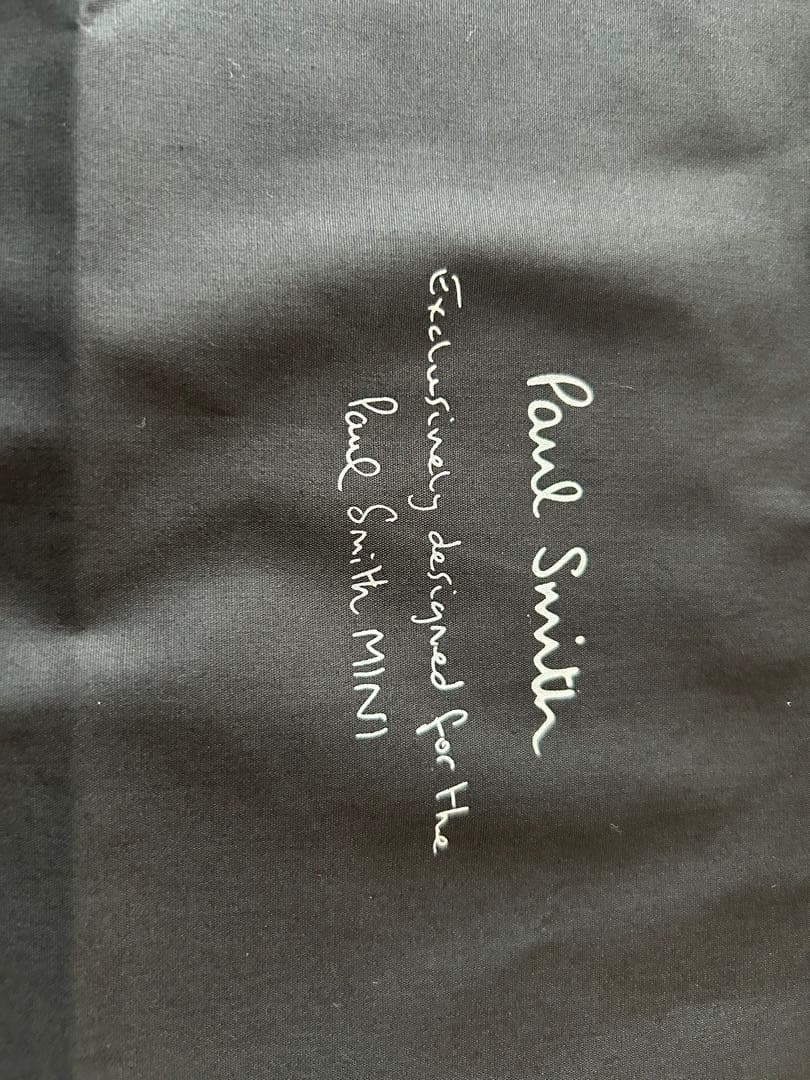 Paul Smith
Exclusively designed for the
Paul Smith MINI